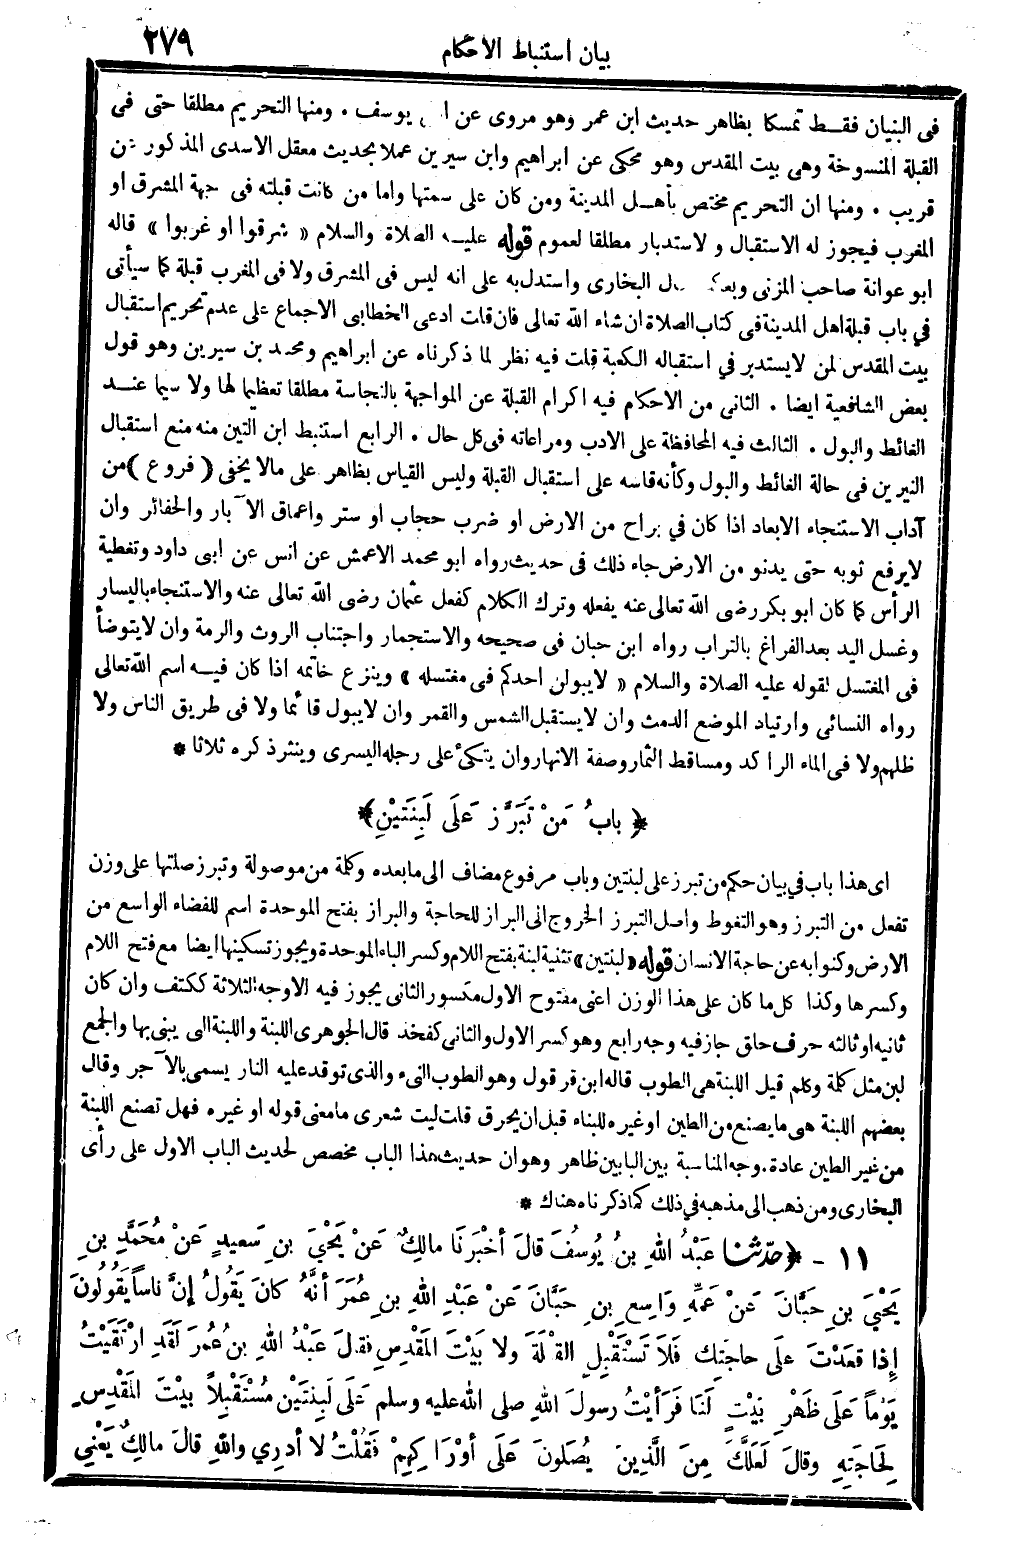 ٢٧٩
بيان استنباط الأحكام
فى البنيان فقـط تمسكا بظاهر حديث ابن عمر وهو مروى عن ا يوسف . ومنها التحريم مطلقا حتى فى
القبلة المنسوخة وهى بيت المقدس وهو محكى عن ابراهيم وابن سيرين عملا بحديث معقل الاسدى المذكور عن
قريب . ومنها ان التحريم مختص بأهـل المدينة ومن كان على سمتها واما من كانت قبلته فى جهة المشرق او
المغرب فيجوز له الاستقبال و لاستدبار مطلقا لعموم قوله عليـه الصلاة والسلام « شرقوا او غربوا » قاله
ابو عوانة صاحب المزنى وبعكـ ـل البخارى واستدل به على انه ليس فى المشرق ولا فى المغرب قبلة كما سيأتى
في باب قبلة اهل المدينة فى كتاب الصلاة ان شاء الله تعالى فان قلت ادعى الخطابى الاجماع على عدم تحريم استقبال
بيت المقدس لمن لا يستدبر في استقباله الكعبة قلت فيه نظر لما ذكرناه عن ابراهيم ومحمد بن سيرين وهو قول
بعض الشافعية ايضا . الثانى من الاحكام فيه اكرام القبلة عن المواجهة بالنجاسة مطلقا تعظيما لها ولا سيما عنــد
الغائط والبول . الثالث فيه المحافظة على الادب ومراعاته فى كل حال . الرابع استنبط ابن التين منه منع استقبال
النيرين فى حالة الغائط والبول وكأنه قاسه على استقبال القبلة وليس القياس بظاهر على مالا يخفى ( فروع ) من
آداب الاستنجاء الابعاد اذا كان في براح من الارض او ضرب حجاب او ستر واعماق الآبار والحفائر وان
لا يرفع ثوبه حتى يدنو من الارض جاء ذلك فى حديث رواه ابو محمد الاعمش عن انس عن ابى داود وتغطية
الرأس كما كان ابو بكر رضى الله تعالى عنه يفعله وترك الكلام كفعل عثمان رضى الله تعالى عنه والاستنجاء باليسار
وغسل اليد بعد الفراغ بالتراب رواه ابن حبان فى صحيحه والاستجمار واجتناب الروث والرمة وان لا يتوضأ
فى المغتسل لقوله عليه الصلاة والسلام « لا يبولن احدكم فى مغتسله » وينزع خاتمه اذا كان فيـه اسم الله تعالى
رواه النسائى وارتياد الموضع الدمث وان لا يستقبل الشمس والقمر وان لا يبول قائما ولا فى طريق الناس ولا
ظلهم ولا فى الماء الراكد ومساقط الثمار وصفة الانهار وان يتكئ على رجله اليسرى وينثر ذكره ثلاثا *
﴿ بابُ مَنْ تَبَرَّزَ عَلَى لَبِنَتَيْنِ ﴾
اى هذا باب في بيان حكم من تبرز على لبنتين وباب مرفوع مضاف الى ما بعده وكلمة من موصولة وتبرز صلتها على وزن
تفعل من التبرز وهو التغوط واصل التبرز الخروج الى البراز للحاجة والبراز بفتح الموحدة اسم للفضاء الواسع من
الارض وكنوا به عن حاجة الانسان قوله «لبنتين» تثنية لبنة بفتح اللام وكسر الباء الموحدة ويجوز تسكينها ايضا مع فتح اللام
وكسرها وكذا كل ما كان على هذا الوزن اعنى مفتوح الاول مكسور الثانى يجوز فيه الاوجه الثلاثة ككتف وان كان
ثانيه او ثالثه حرف حلق جاز فيه وجه رابع وهو كسر الاول والثانى كفخذ قال الجوهرى اللبنة واللبنة التى يبنى بها والجمع
لبن مثل كلمة وكلم قيل اللبنة هى الطوب قاله ابن قرقول وهو الطوب النىء والذى توقد عليه النار يسمى بالآجر وقال
بعضهم اللبنة هى ما يصنع من الطين او غيره للبناء قبل ان يحرق قلت ليت شعرى ما معنى قوله او غيره فهل تصنع اللبنة
من غير الطين عادة . وجه المناسبة بين البابين ظاهر وهو ان حديث هذا الباب مخصص لحديث الباب الاول على رأى
البخارى ومن ذهب الى مذهبه في ذلك كما ذكرناه هناك *
١١ - ﴿ حَدّثنا عَبْدُ اللهِ بنُ يُوسُفَ قالَ أخْبَرَنَا مالِكٌ عَنْ يَحْيَى بنِ سَعِيدٍ عَنْ مُحَمَّدِ بنِ
يَحْيَى بنِ حَبَّانَ عَنْ عَمِّهِ وَاسِعِ بنِ حَبَّانَ عَنْ عَبْدِ اللهِ بنِ عُمَرَ أنَّهُ كانَ يَقُولُ إنَّ ناساً يَقُولُونَ
إذا قَعَدْتَ عَلَى حاجَتِكَ فَلَا تَسْتَقْبِلِ القبْلَةَ ولا بَيْتَ المَقْدِسِ فقالَ عَبْدُ اللهِ بنُ عُمَرَ لَقَدِ ارْتَقَيْتُ
يَوْماً عَلَى ظَهْرِ بَيْتٍ لَنَا فَرَأيْتُ رسولَ اللهِ صلى الله عليه وسلم عَلَى لَبِنَتَيْنِ مُسْتَقْبِلاً بيْتَ المَقْدِسِ
لِحَاجَتِهِ وقالَ لَعَلَّكَ مِنَ الَّذِينَ يُصَلونَ عَلَى أوْرَاكِهِمْ فَقُلْتُ لا أدرِي واللهِ قالَ مالِكٌ يَعْنِي